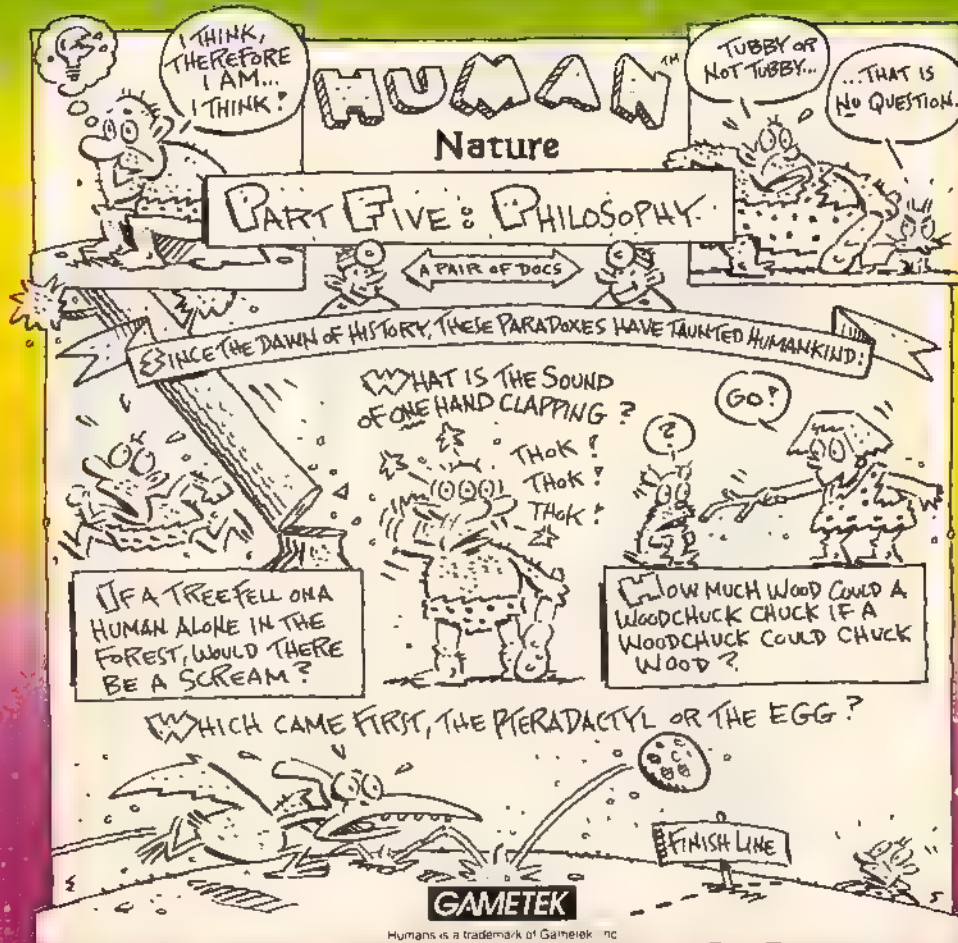 I THINK,
THEREFORE
I AM...
I THINK!
HUMAN™
Nature
TUBBY OR
NOT TUBBY...
...THAT IS
NO QUESTION.
PART FIVE: PHILOSOPHY
A PAIR OF DOCS
SINCE THE DAWN OF HISTORY, THESE PARADOXES HAVE TAUNTED HUMANKIND:
WHAT IS THE SOUND
OF ONE HAND CLAPPING?
THOK!
THOK!
THOK!
?
GO!
IF A TREE FELL ON A
HUMAN ALONE IN THE
FOREST, WOULD THERE
BE A SCREAM?
HOW MUCH WOOD COULD A
WOODCHUCK CHUCK IF A
WOODCHUCK COULD CHUCK
WOOD?
WHICH CAME FIRST, THE PTERADACTYL OR THE EGG?
FINISH LINE
GAMETEK
Humans is a trademark of Gametek Inc